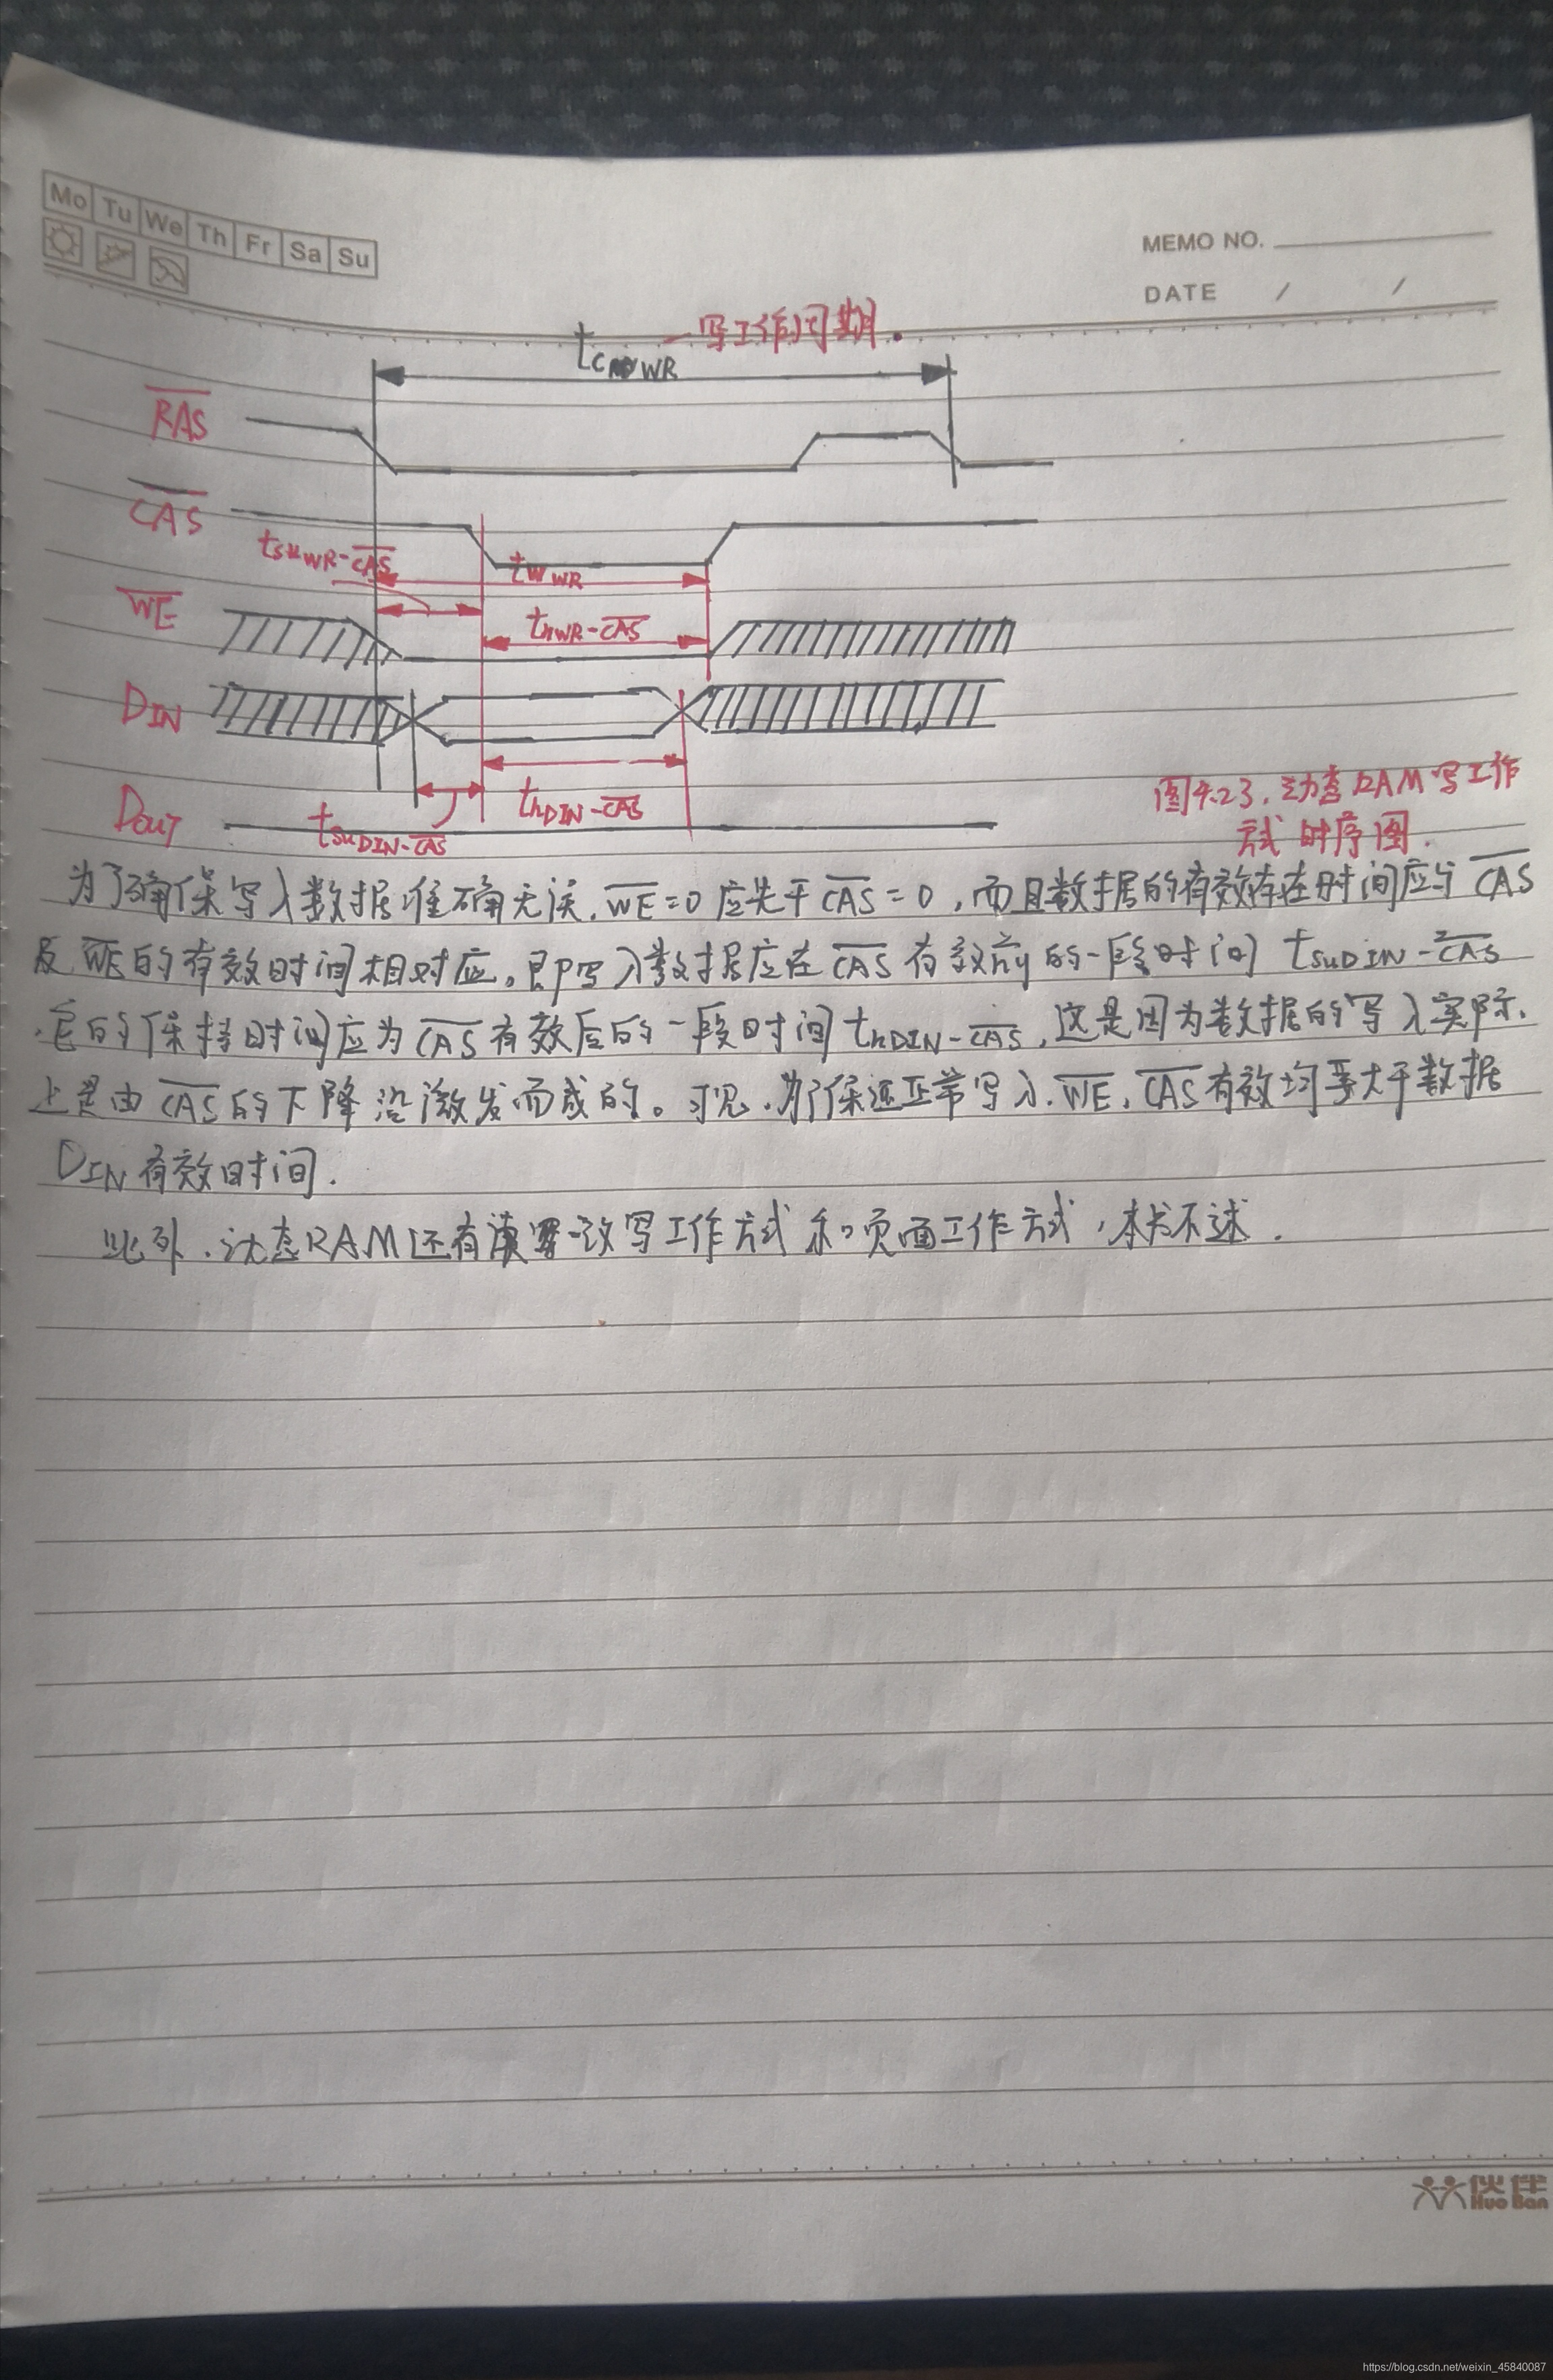 Mo Tu We Th Fr Sa Su
MEMO NO.
DATE / /
tCWR 一写工作周期.
R̅A̅S̅
C̅A̅S̅
tsuWR-C̅A̅S̅ tWWR
W̅E̅
thWR-C̅A̅S̅
DIN
thDIN-C̅A̅S̅
tsuDIN-C̅A̅S̅
DOUT
图4.23.动态RAM写工作
式时序图.
为了确保写入数据准确无误.W̅E̅=0应先于C̅A̅S̅=0,而且数据的有效存在时间应与C̅A̅S̅
及W̅E̅的有效时间相对应。即写入数据应在C̅A̅S̅有效前的一段时间tsuDIN-C̅A̅S̅
.它的保持时间应为C̅A̅S̅有效后的一段时间thDIN-C̅A̅S̅,这是因为数据的写入实际.
上是由C̅A̅S̅的下降沿激发而成的。可见.为了保证正常写入.W̅E̅,C̅A̅S̅有效均要大于数据
DIN有效时间.
此外.动态RAM还有读写一改写工作方式和页面工作方式,本书不述.
伙伴
Huo Ban
https://blog.csdn.net/weixin_45840087